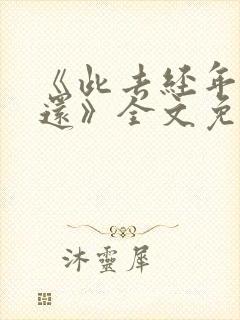 《此去经年
还》全文免
沐灵犀